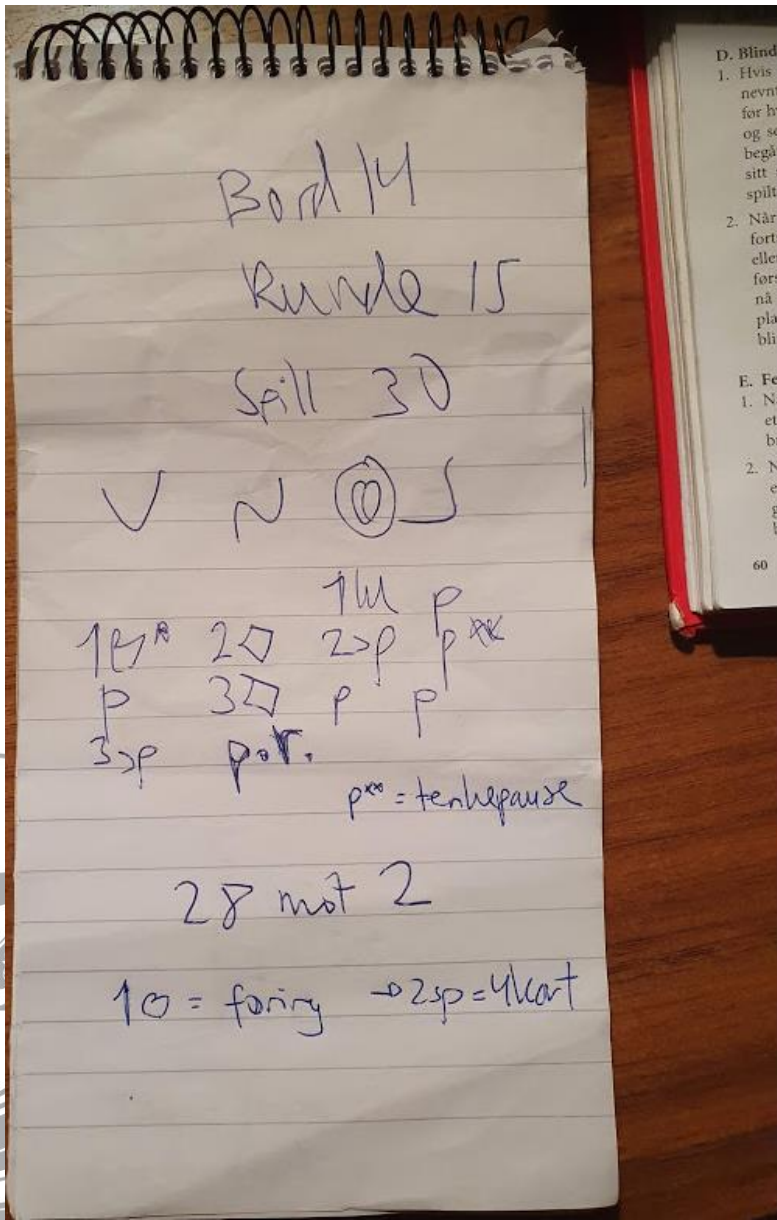 Bord 14
Runde 15
Spill 30
V N Ø S
1kl p
1♥* 2♦ 2sp p**
p 3♦ p p
3sp p.r.
p** = tenkepause
28 mot 2
1♥ = føring → 2sp = 4kort
D. Blind
1. Hvis
nevnt
før h
og se
begå
sitt
spilt
2. Når
fort
elle
førs
nå
pla
bli
E. Fe
1. N
et
b
2. N
e
g
60